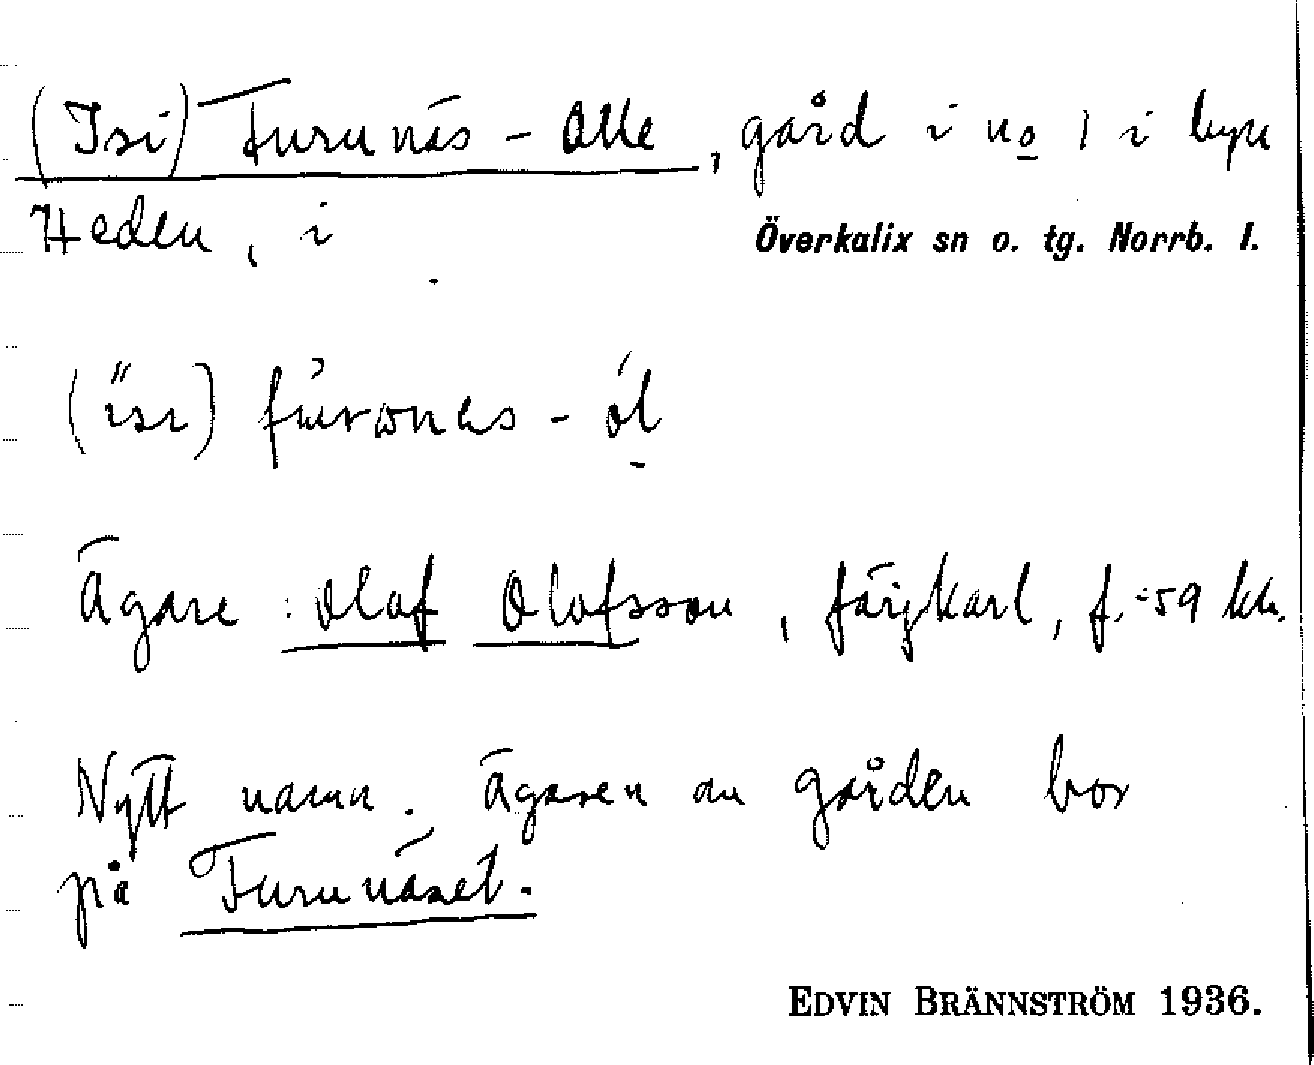 (Isi) Furunäs - Olle, gård i no 1 i byn
Heden, i Överkalix sn o. tg. Norrb. l.
Ägare: Olof Olofsson, färjkarl, f. -59
Nytt namn. Ägaren av gården bor
på Furunäset.
EDVIN BRÄNNSTRÖM 1936.